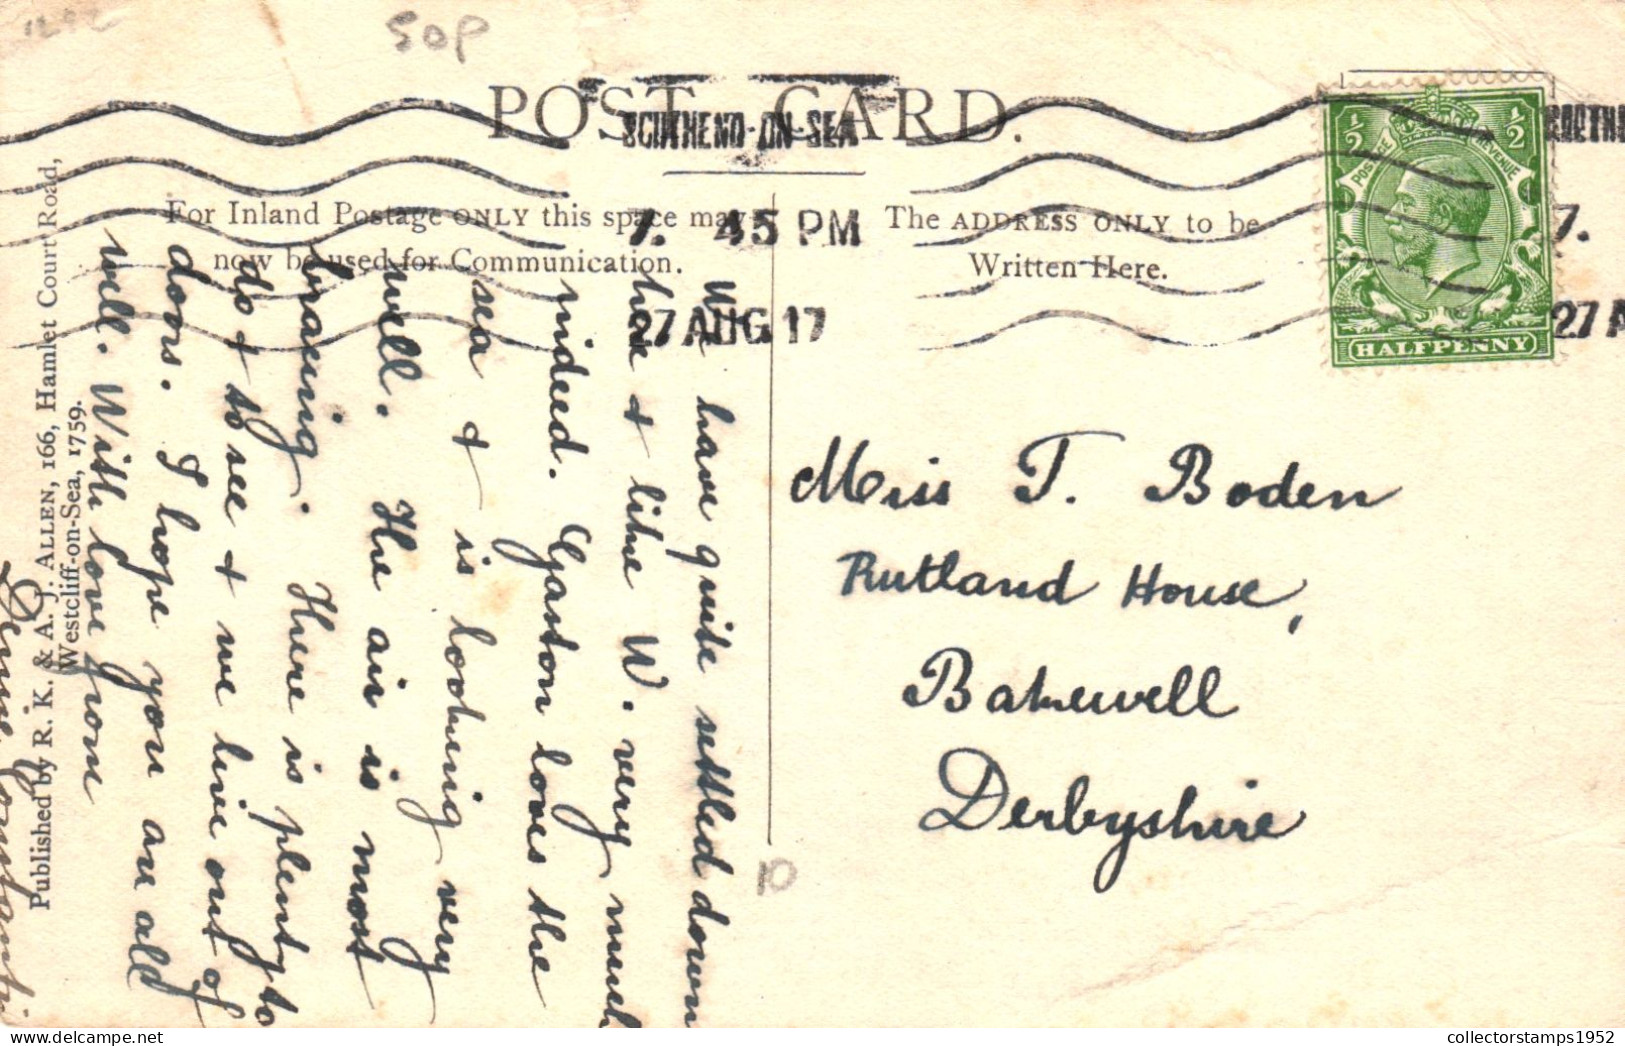 1292
50p
POST CARD.
SOUTHEND-ON-SEA
7. 45 PM
27 AUG 17
For Inland Postage ONLY this space may
now be used for Communication.
The ADDRESS ONLY to be
Written Here.
½ ½
POSTAGE REVENUE
HALFPENNY
7.
27 A
We have quite settled down
here & like W. very much
indeed. Gaston loves the
sea & is looking very
well. The air is most
bracing. There is plenty to
do & to see & we live out of
doors. I hope you are all
well. With love from
Published by R. K. & A. J. ALLEN, 166, Hamlet Court Road,
Westcliff-on-Sea, 1759.
Miss T. Boden
Rutland House,
Bakewell
Derbyshire
10
collectorstamps1952